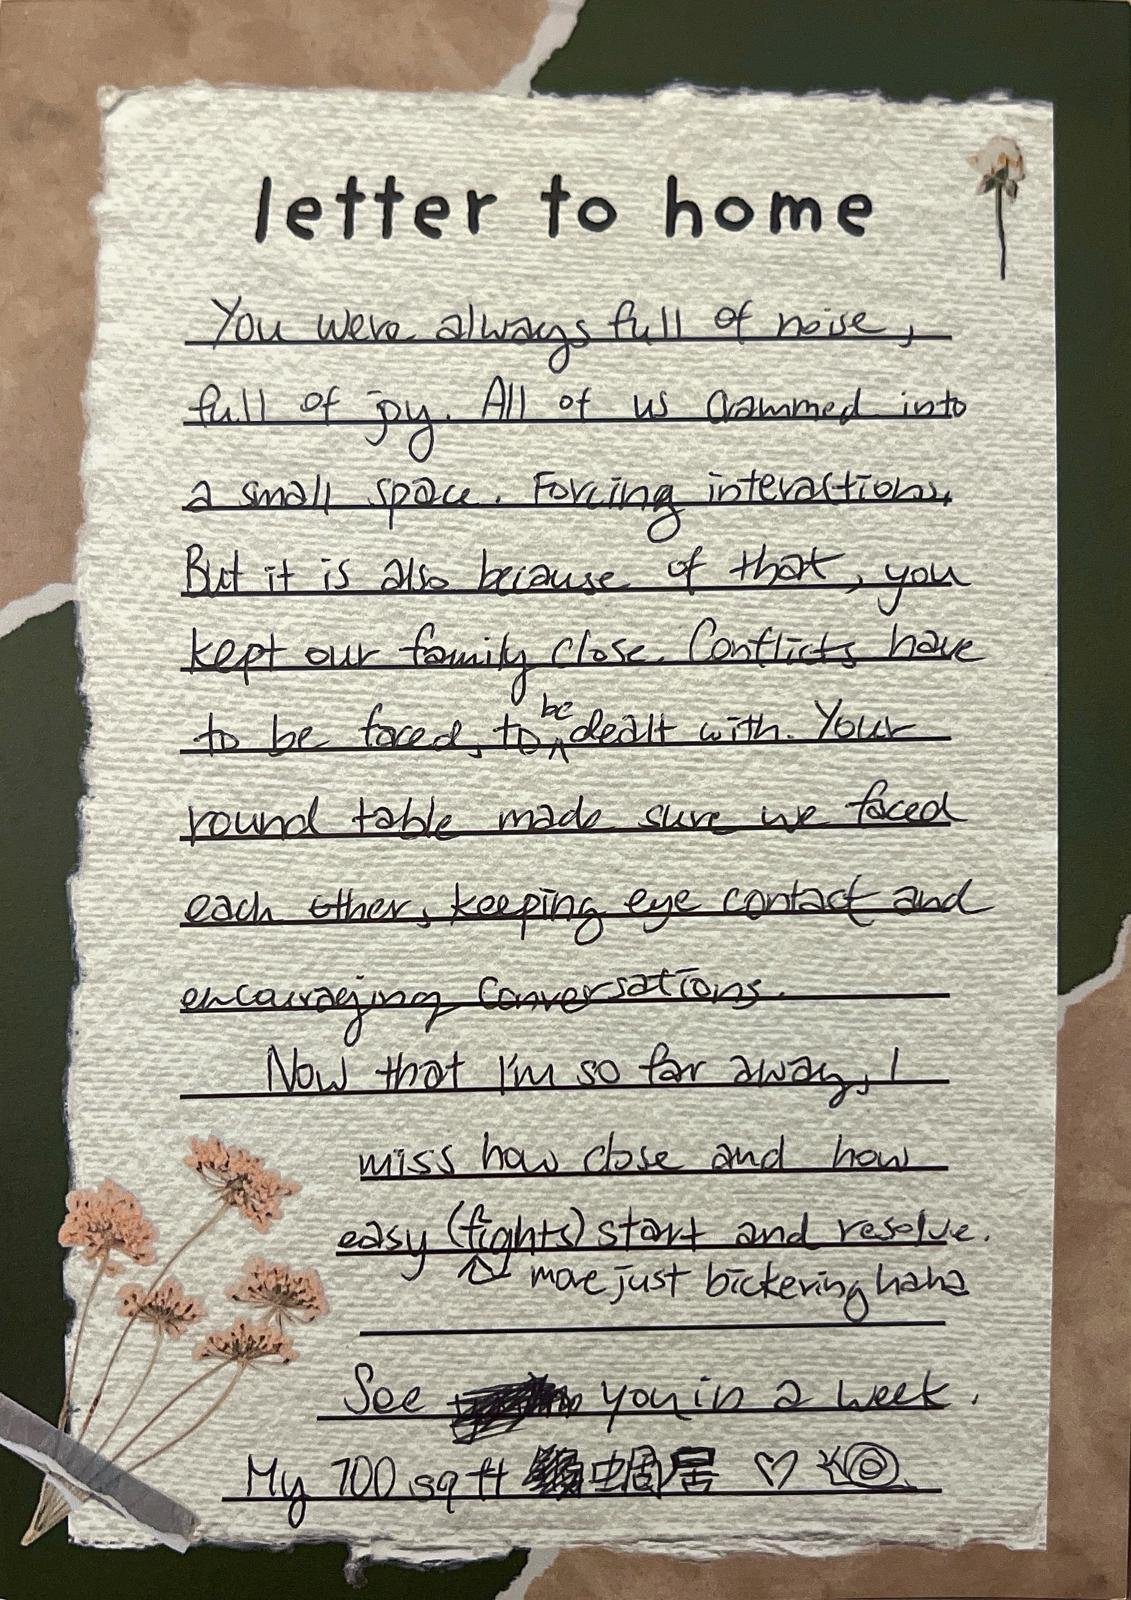 letter to home
You were always full of noise,
full of joy. All of us crammed into
a small space. Forcing interactions.
But it is also because of that, you
kept our family close. Conflicts have
to be faced, to be dealt with. Your
round table made sure we faced
each other, keeping eye contact and
encouraging conversations.
Now that I'm so far away, I
miss how close and how
easy (fights) start and resolve.
more just bickering haha
See you in a week.
My 700 sq ft 蝸居 ♡